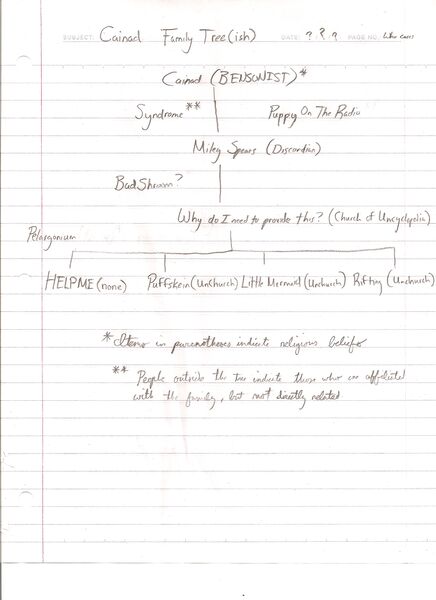 SUBJECT: Cainad Family Tree(ish) DATE: ? ? ? PAGE NO. Who cares
Cainad (BENSONIST)*
Syndrome** Puppy On The Radio
Miley Spears (Discordian)
BadShroom?
Why do I need to provide this? (Church of Uncyclopedia)
Pelargonium
HELPME (none) Puffskein (UnChurch) Little Mermaid (Unchurch) Riftry (Unchurch)
*Items in parentheses indicate religious beliefs
** People outside the tree indicate those who are affiliated
with the family, but not directly related